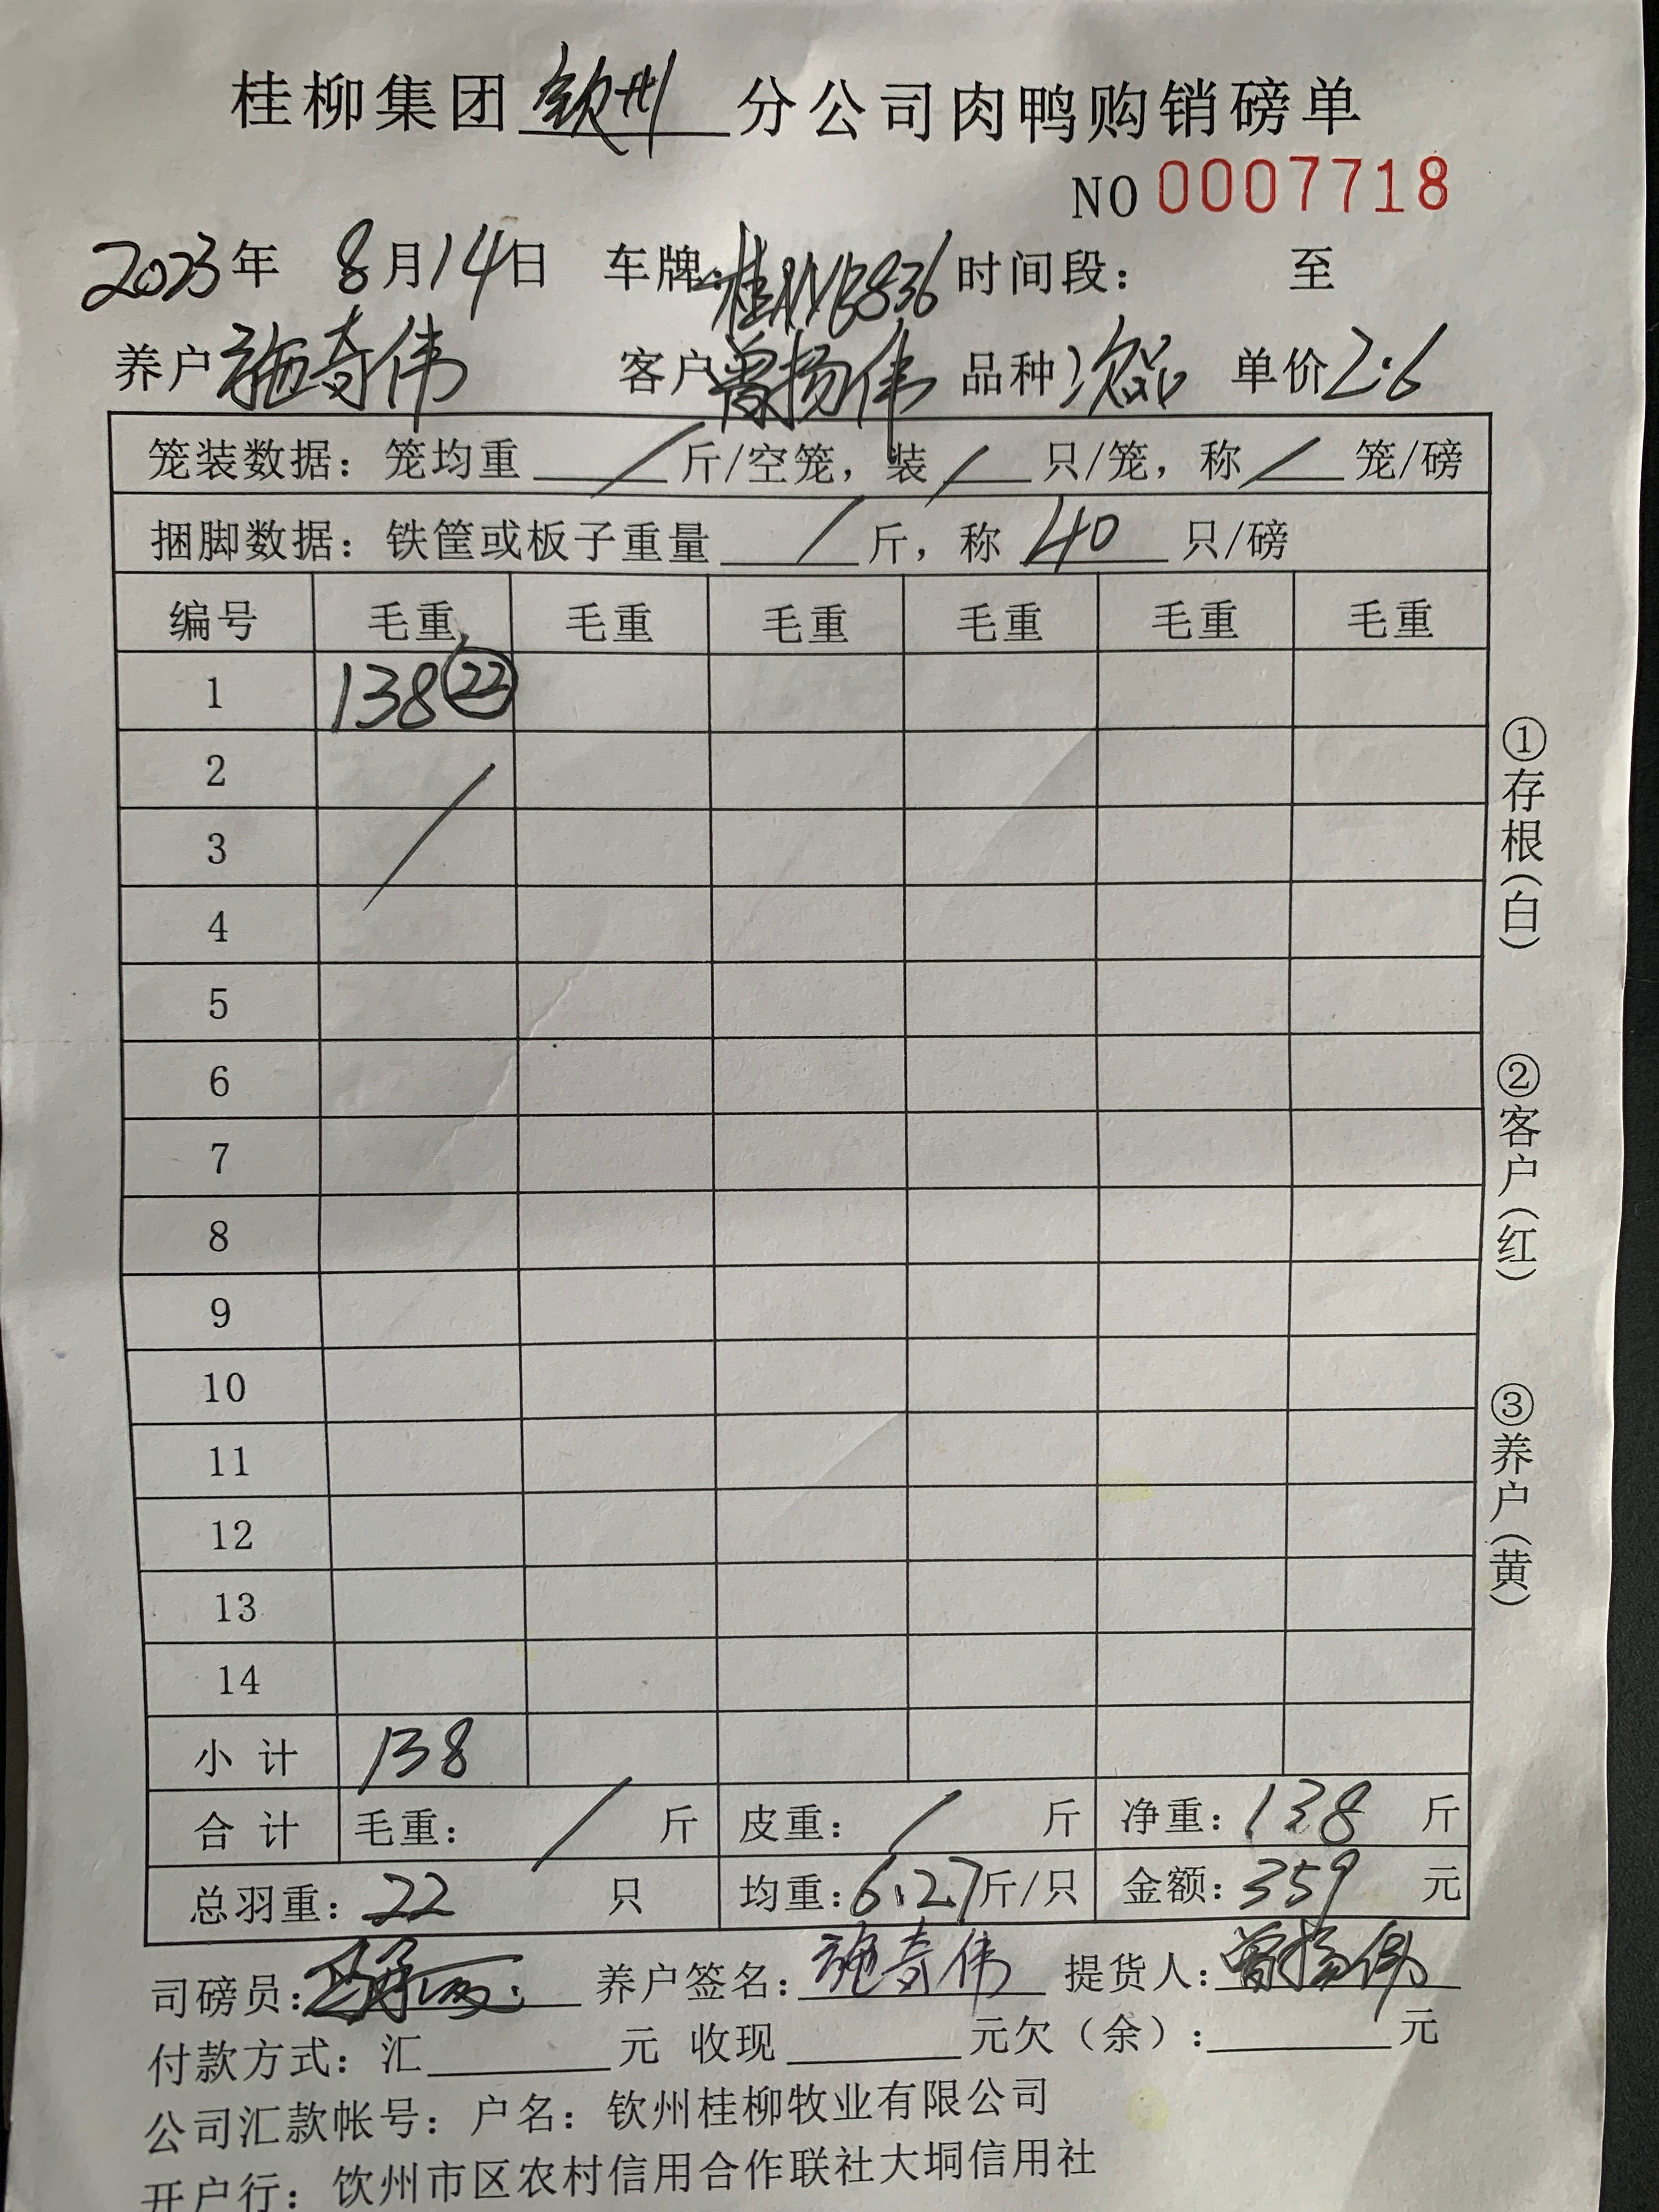 桂柳集团钦州分公司肉鸭购销磅单
NO 0007718
2023年 8月14日 车牌: 时间段: 至
养户 施奇伟 客户 曾扬伟 品种 次品 单价 2.6
笼装数据: 笼均重 / 斤/空笼, 装 / 只/笼, 称 / 笼/磅
捆脚数据: 铁筐或板子重量 / 斤, 称 40 只/磅
编号 毛重 毛重 毛重 毛重 毛重 毛重
1 138 ㉒
2
3
4
5
6
7
8
9
10
11
12
13
14
小计 138
合计 毛重: / 斤 皮重: / 斤 净重: 138 斤
总羽重: 22 只 均重: 6.27 斤/只 金额: 359 元
司磅员: 养户签名: 施奇伟 提货人: 曾扬伟
付款方式: 汇 元 收现 元欠(余): 元
公司汇款帐号: 户名: 钦州桂柳牧业有限公司
开户行: 钦州市区农村信用合作联社大垌信用社
①存根(白)
②客户(红)
③养户(黄)